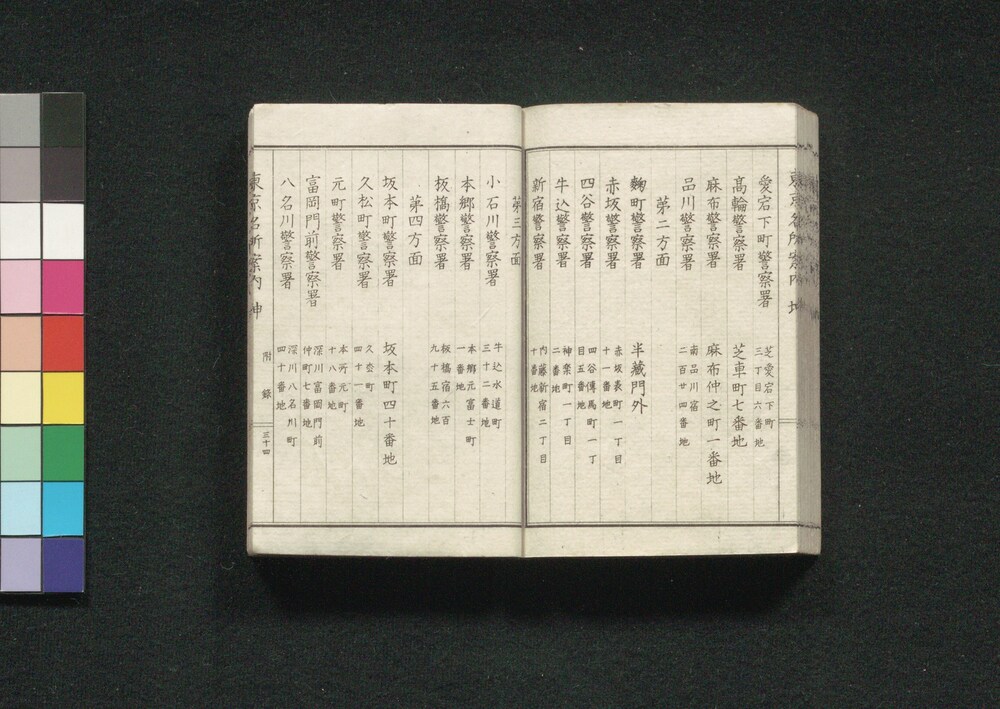 東京名所案内 地
愛宕下町警察署 芝愛宕下町三丁目六番地
高輪警察署 芝車町七番地
麻布警察署 麻布仲之町一番地
品川警察署 南品川宿二百廿四番地
第二方面
麴町警察署 半藏門外
赤坂警察署 赤坂表町一丁目十一番地
四谷警察署 四谷傳馬町一丁目五番地
牛込警察署 神樂町一丁目二番地
新宿警察署 内藤新宿二丁目十番地
第三方面
小石川警察署 牛込水道町三十二番地
本郷警察署 本郷元富士町一番地
板橋警察署 板橋宿六百九十五番地
第四方面
坂本町警察署 坂本町四十番地
久松町警察署 久松町四十一番地
元町警察署 本所元町十八番地
富岡門前警察署 深川富岡門前仲町七番地
八名川警察署 深川八名川町四十番地
東京名所案内 附錄 三十四